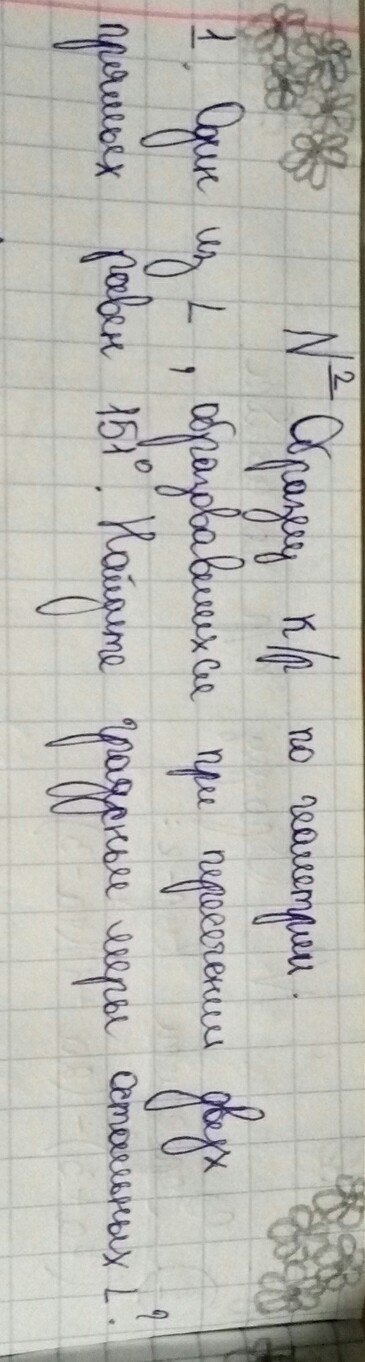 №2 Образец к/р по геометрии.
1. Один из ∟, образовавшихся при пересечении двух
прямых равен 151°. Найдите градусные меры остальных ∟?